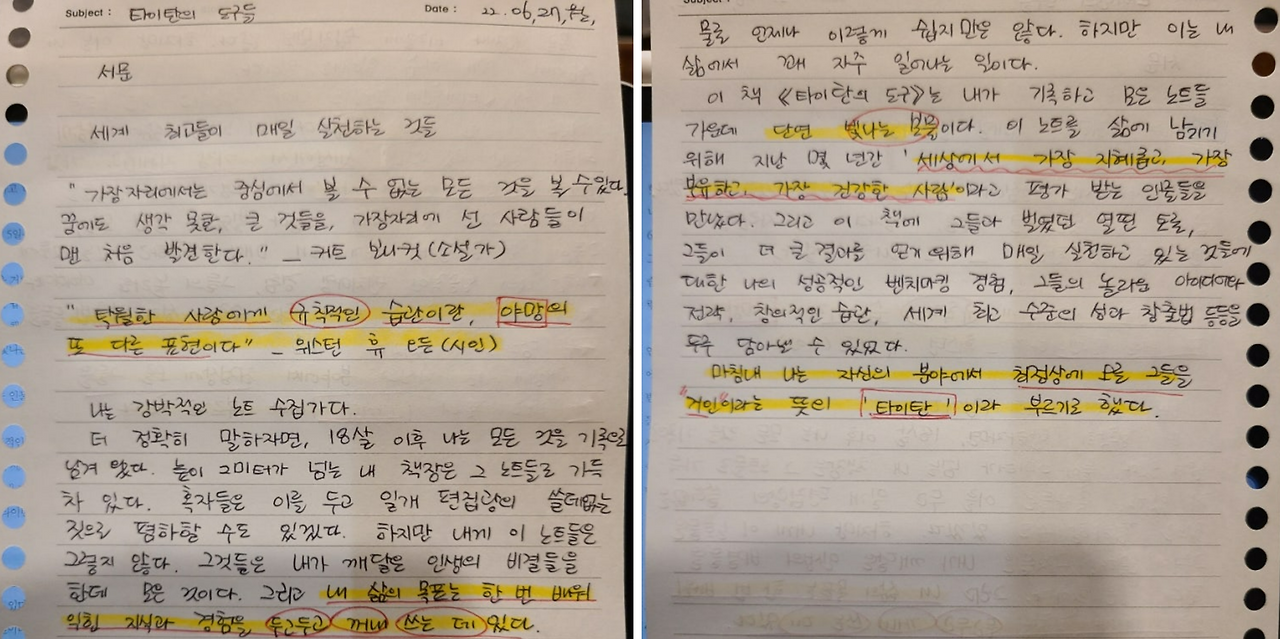 Subject : 타이탄의 도구들 Date : 22.06.27.월.
서문
세계 최고들이 매일 실천하는 것들
"가장자리에서는 중심에서 볼 수 없는 모든 것을 볼 수 있다.
꿈에도 생각 못한, 큰 것들을, 가장자리에 선 사람들이
맨 처음 발견한다." _ 커트 보니것 (소설가)
"탁월한 사람에게 규칙적인 습관이란, 야망의
또 다른 표현이다" _ 위스턴 휴 오든 (시인)
나는 강박적인 노트 수집가다.
더 정확히 말하자면, 18살 이후 나는 모든 것을 기록으로
남겨 왔다. 높이 2미터가 넘는 내 책장은 그 노트들로 가득
차 있다. 혹자들은 이를 두고 일개 편집광의 쓸데없는
짓으로 폄하할 수도 있겠다. 하지만 내게 이 노트들은
그렇지 않다. 그것들은 내가 깨달은 인생의 비결들을
한데 모은 것이다. 그리고 내 삶의 목표는 한 번 배워
익힌 지식과 경험을 두고두고 꺼내 쓰는 데 있다.
물론 언제나 이렇게 쉽지만은 않다. 하지만 이는 내
삶에서 꽤 자주 일어나는 일이다.
이 책 《타이탄의 도구》는 내가 기록하고 모은 노트들
가운데 단연 빛나는 보물이다. 이 노트를 삶에 남기기
위해 지난 몇 년간 '세상에서 가장 지혜롭고, 가장
부유하고, 가장 건강한 사람'이라고 평가 받는 인물들을
만났다. 그리고 이 책에 그들과 벌였던 열띤 토론,
그들이 더 큰 결과를 얻기 위해 매일 실천하고 있는 것들에
대한 나의 성공적인 벤치마킹 경험, 그들의 놀라운 아이디어와
전략, 창의적인 습관, 세계 최고 수준의 성과 창출법 등등을
두루 담아낼 수 있었다.
마침내 나는 자신의 분야에서 최정상에 오른 그들을
"거인"이라는 뜻의 '타이탄'이라 부르기로 했다.